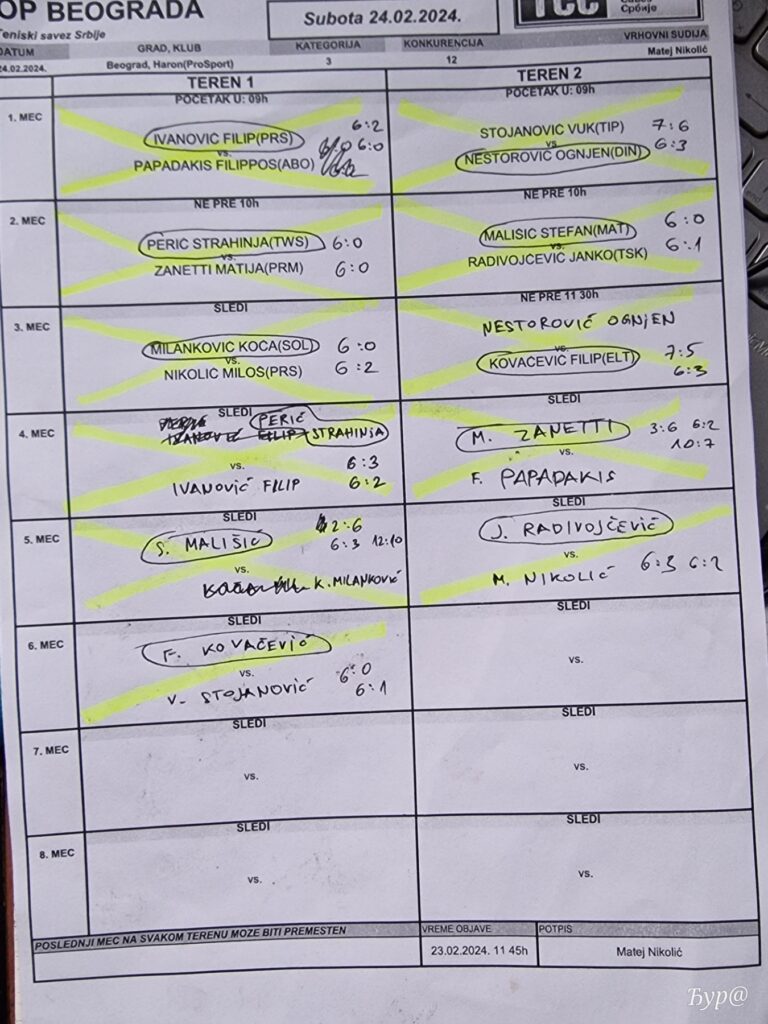 OP BEOGRADA
Teniski savez Srbije
Subota 24.02.2024.
TCC
Србије
DATUM GRAD, KLUB KATEGORIJA KONKURENCIJA VRHOVNI SUDIJA
24.02.2024. Beograd, Haron(ProSport) 3 12 Matej Nikolić
TEREN 1 TEREN 2
1. MEC
POCETAK U: 09h
IVANOVIC FILIP(PRS) 6:2
vs.
PAPADAKIS FILIPPOS(ABO) 6:0
POCETAK U: 09h
STOJANOVIC VUK(TIP) 7:6
vs.
NESTOROVIC OGNJEN(DIN) 6:3
2. MEC
NE PRE 10h
PERIC STRAHINJA(TWS) 6:0
vs.
ZANETTI MATIJA(PRM) 6:0
NE PRE 10h
MALISIC STEFAN(MAT) 6:0
vs.
RADIVOJCEVIC JANKO(TSK) 6:1
3. MEC
SLEDI
MILANKOVIC KOCA(SOL) 6:0
vs.
NIKOLIC MILOS(PRS) 6:2
NE PRE 11 30h
NESTOROVIĆ OGNJEN
vs.
KOVACEVIC FILIP(ELT) 7:5
6:3
4. MEC
SLEDI
PERIĆ
STRAHINJA
vs. 6:3
IVANOVIĆ FILIP 6:2
SLEDI
M. ZANETTI 3:6 6:2
vs. 10:7
F. PAPADAKIS
5. MEC
SLEDI
2:6
S. MALIŠIĆ 6:3 12:10
vs.
K. MILANKOVIĆ
SLEDI
J. RADIVOJČEVIĆ
vs.
M. NIKOLIĆ 6:3 6:2
6. MEC
SLEDI
F. KOVAČEVIĆ
vs. 6:0
V. STOJANOVIĆ 6:1
SLEDI
vs.
7. MEC
SLEDI
vs.
SLEDI
vs.
8. MEC
SLEDI
vs.
SLEDI
vs.
POSLEDNJI MEC NA SVAKOM TERENU MOZE BITI PREMESTEN
VREME OBJAVE POTPIS
23.02.2024. 11 45h Matej Nikolić
Ђур@